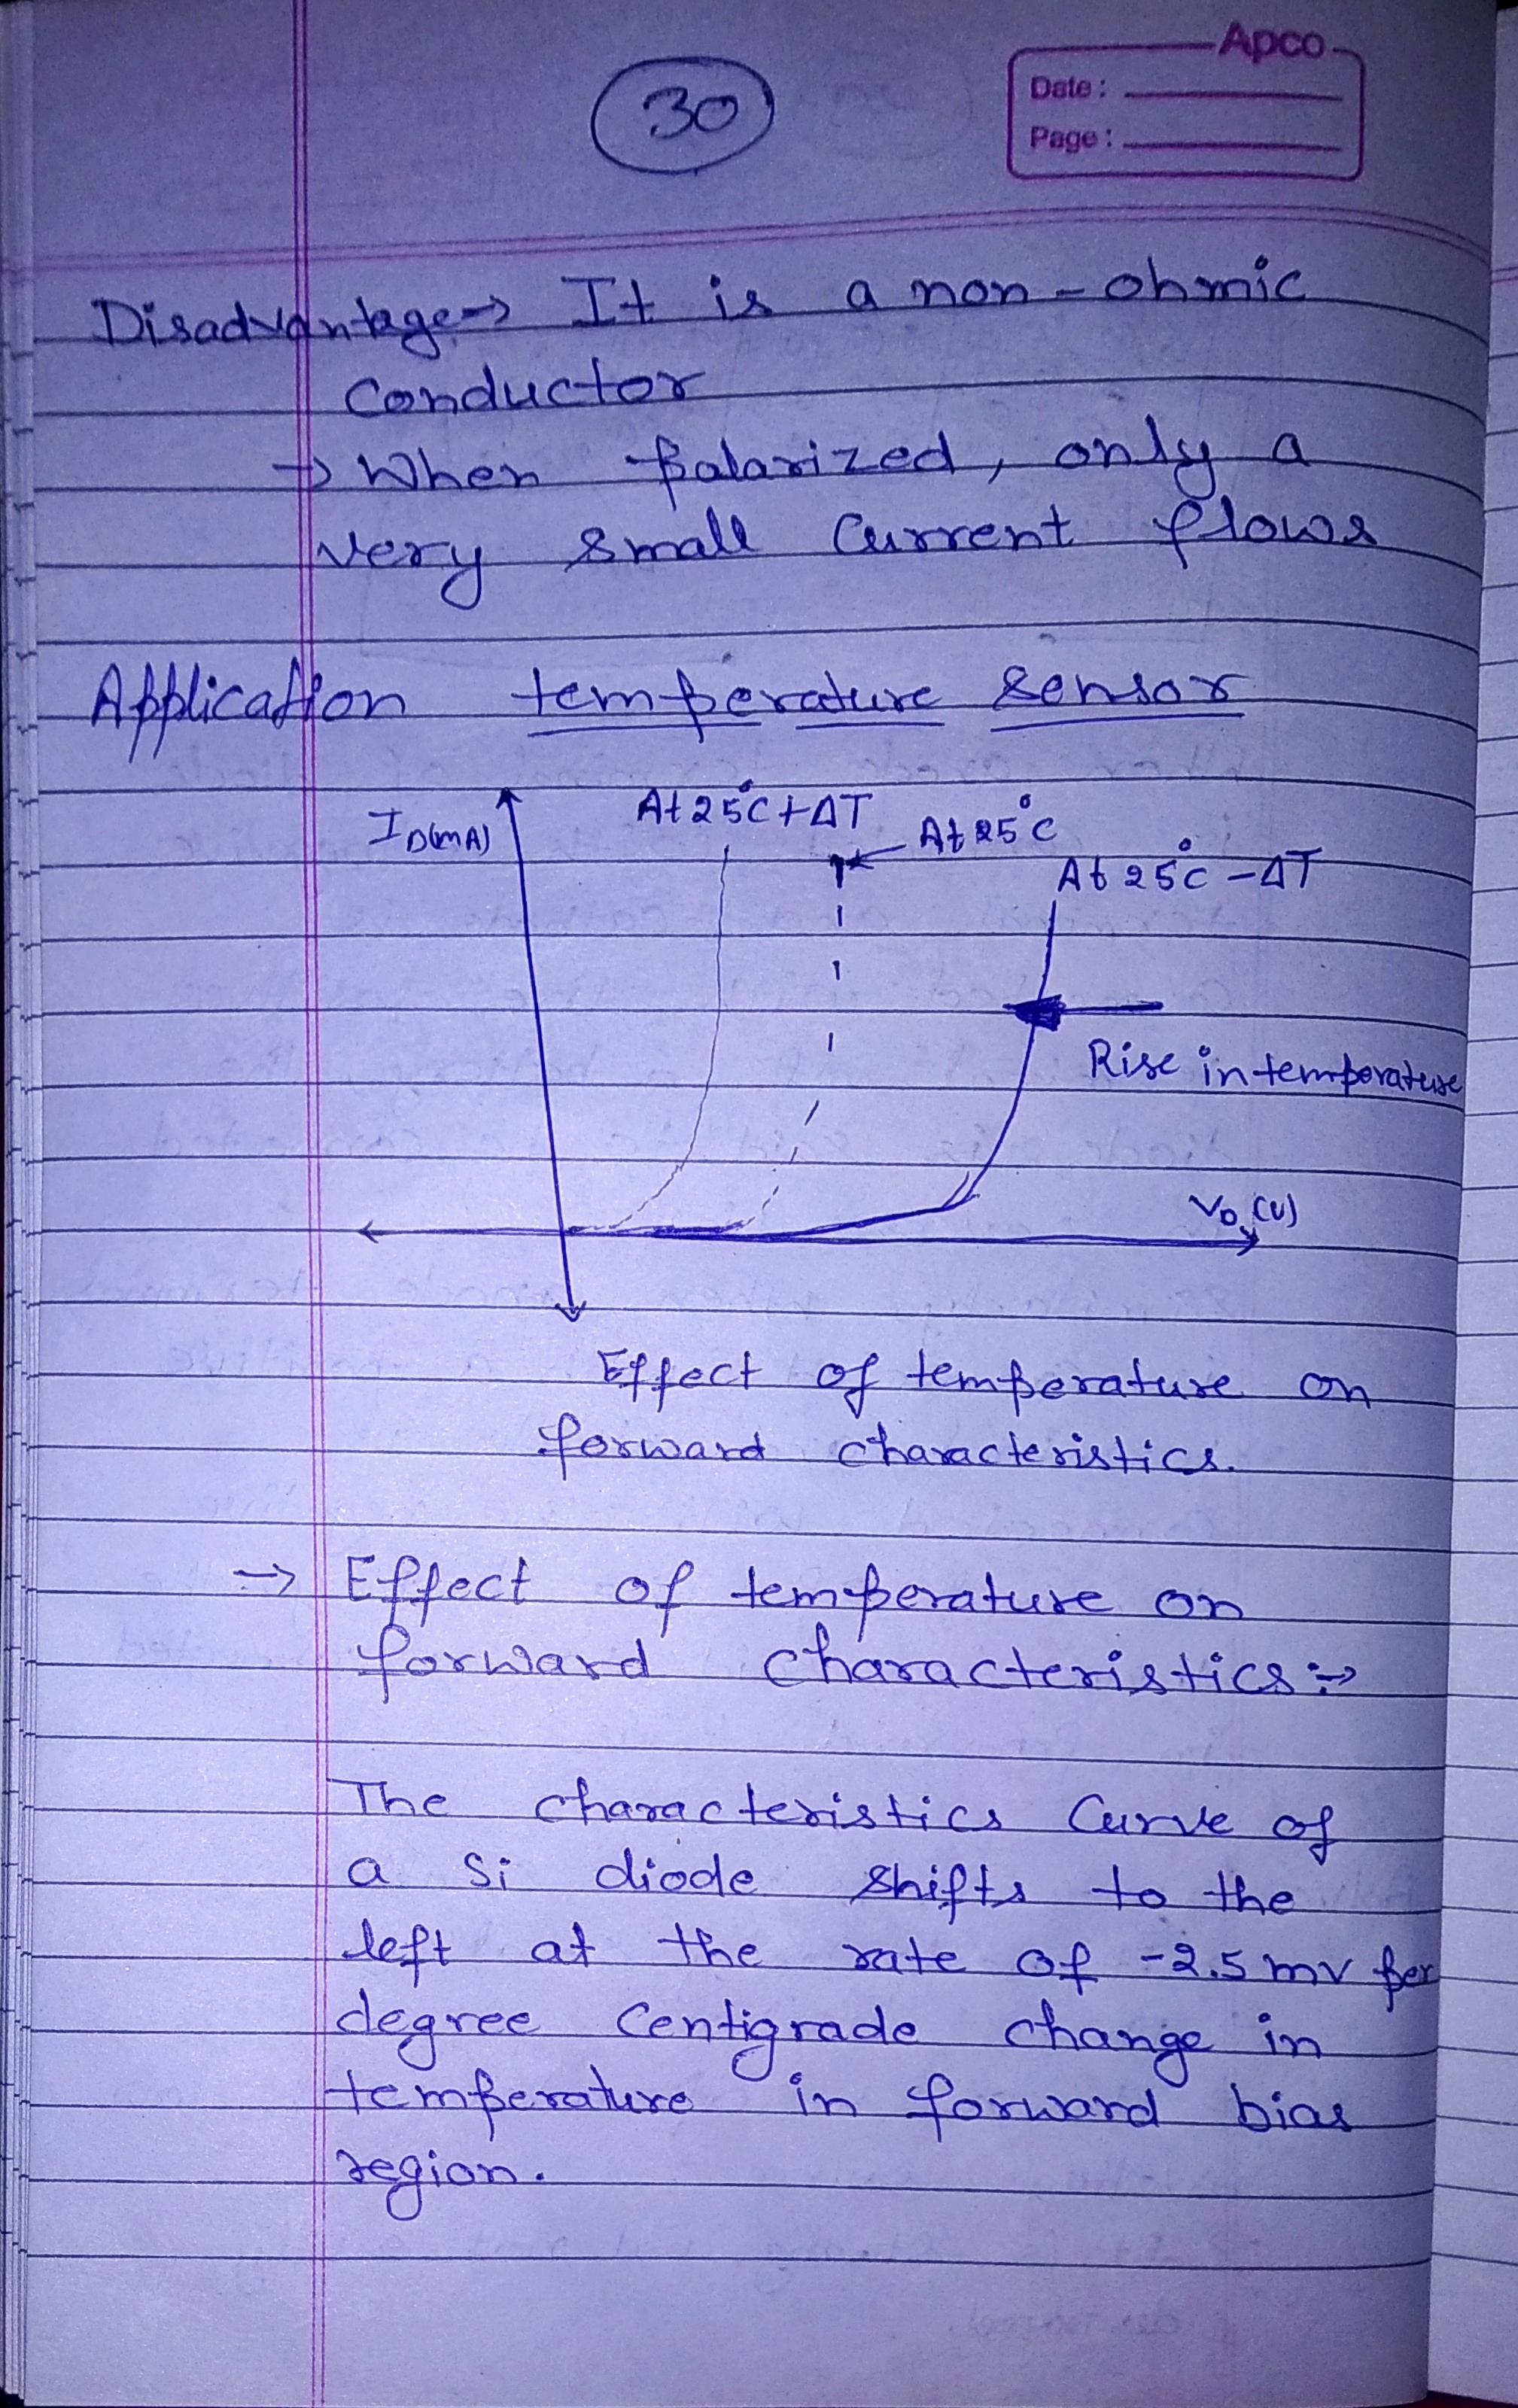 30
Apco
Date:
Page:
Disadvantage→ It is a non-ohmic
conductor
→ When palarized, only a
very small current flows
Application temperature sensor
ID(mA)
At 25°C+ΔT
At 25°C
At 25°C-ΔT
Rise in temperature
VD(V)
Effect of temperature on
forward characteristics.
→ Effect of temperature on
forward characteristics:→
The characteristics curve of
a Si diode shifts to the
left at the rate of -2.5 mv per
degree centigrade change in
temperature in forward bias
region.